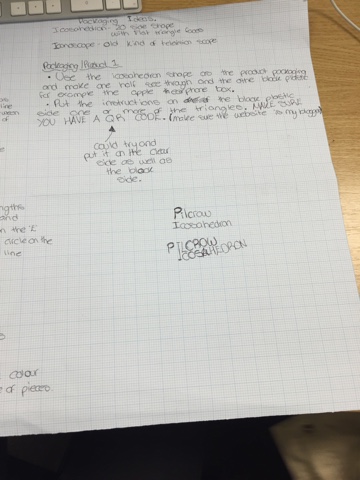 Packaging Ideas.
Icosahedron: 20 side shape
with flat triangle faces
Iconoscope: old kind of television scope
Packaging/Product 1
• Use the icosahedron shape as the product packaging
and make one half see through and the other black plastic
for example the apple earphone box.
• Put the instructions on the black plastic
side one or more of the triangles. MAKE SURE
YOU HAVE A QR CODE. (make sure the website is my blogger)
could try and
put it on the clear
side as well as
the black
side.
ngths
and
n the 'L'
circle on the
line
Pilcrow
Icosahedron
PILCROW
ICOSAHEDRON
colour
e of pieces.